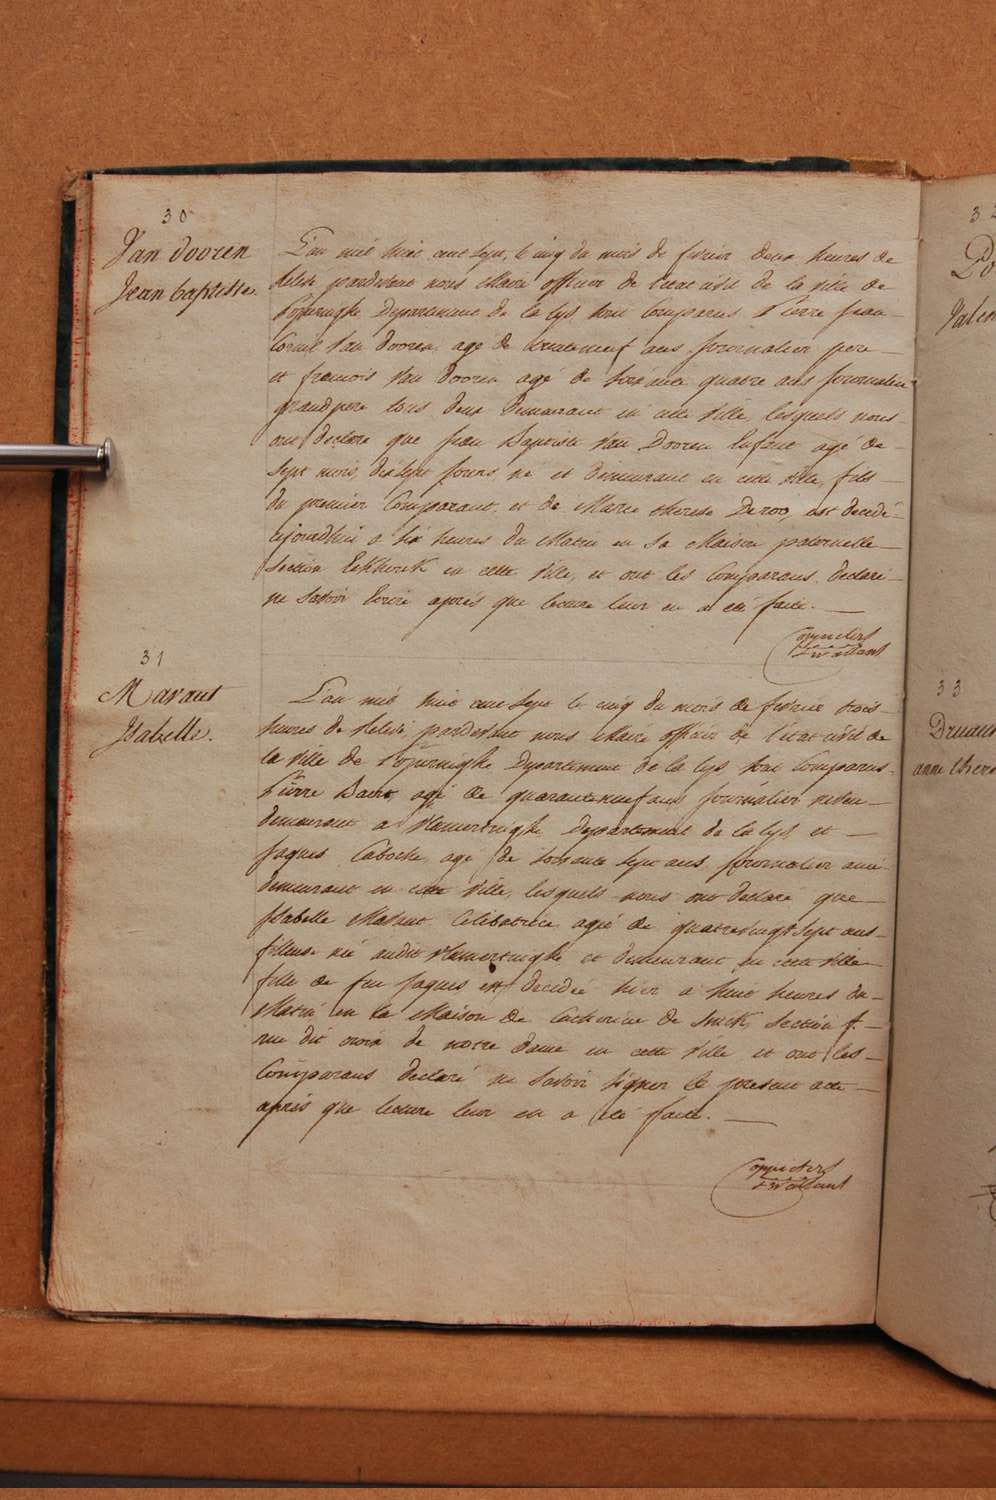 30
Van dooren
Jean baptiste.
L'an mil huit cent sept, le cinq du mois de fevrier deux heures de
relevé pardevant nous Maire officier de l'etat civil de la ville de
Poperinghe Departement de la Lys sont Comparus Pierre Jean
Corneil Van dooren agé de trenteneuf ans Journalier pere
et francois Van Dooren agé de soixante quatre ans Journalier
grand pere tous deux Demeurant en cette Ville, lesquels nous
ont declaré que Jean Baptiste Van Dooren Enfant agé de
Sept mois, dix sept jours, né et demeurant en cette Ville, fils
du premier Comparant, et de Marie therese Deroo, est decedé
cejourdhui a six heures du Matin en sa Maison paternelle
Section Eekhoek en cette Ville, et ont les Comparans declaré
ne savoir Ecrire aprés que lecture leur en a eté faite.
31
Mavaut
Isabelle.
L'an mil huit cent Sept le cinq du mois de fevrier trois
heures de relevé, pardevant nous Maire officier de l'état civil de
la ville de Poperinghe Departement de la Lys sont Comparus
Pierre agé de quaranteneuf ans Journalier neveu
demeurant a Vlamertinghe Departement de la Lys et
Jaques Caboche, agé de soixante sept ans Journalier ami
demeurant en cette Ville, lesquels nous ont declaré que
Isabelle Mavaut Celibatrice agée de quatrevingt sept ans
fileuse née audit Vlamertinghe et demeurant en cette Ville
fille de feu Jaques est decedée hier a huit heures du
Matin en la Maison de Catherine de Section f.
rue dit de notre dame en cette Ville et ont les
Comparans declaré ne savoir signer le présent acte
aprés que lecture leur en a eté faite.
33
anne there